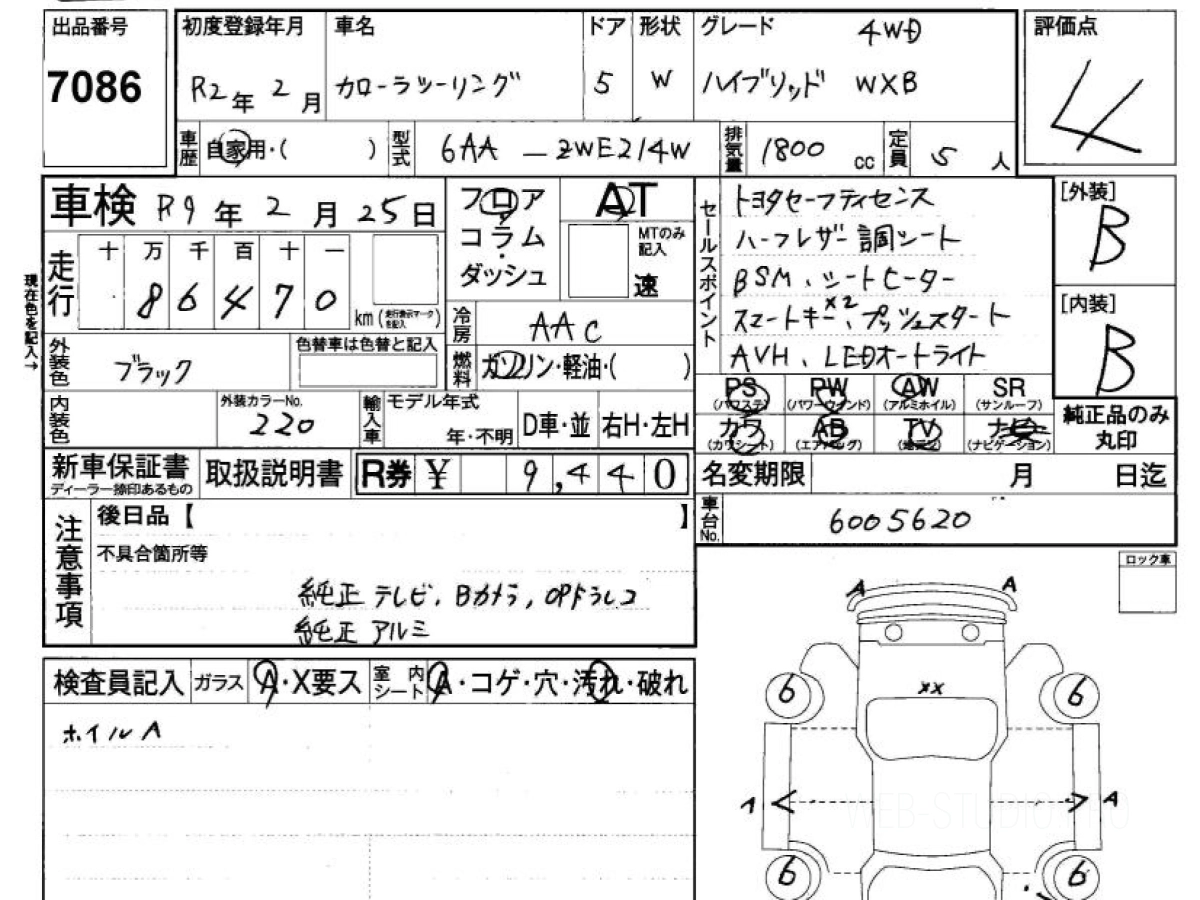 出品番号
7086
初度登録年月
R2年 2月
車名
カローラツーリング
ドア
5
形状
W
グレード
4WD
ハイブリッド WXB
評価点
4
車歴
自家用・( )
型式
6AA-ZWE214W
排気量
1800 cc
定員
5 人
車検 R9年 2月 25日
走行
十 万 千 百 十 一
8 6 4 7 0
km(走行表示マークを記入)
現在色を記入→
外装色
ブラック
色替車は色替と記入
内装色
外装カラーNo.
220
フロア
コラム
ダッシュ
AT
MTのみ記入
速
冷房
AAC
燃料
ガソリン・軽油・( )
輸入車
モデル年式
年・不明
D車・並
右H・左H
セールスポイント
トヨタセーフティセンス
ハーフレザー調シート
BSM、シートヒーター
スマートキー×2、プッシュスタート
AVH、LEDオートライト
[外装]
B
[内装]
B
PS
(パワステ)
PW
(パワーウィンド)
AW
(アルミホイル)
SR
(サンルーフ)
カワ
(カワシート)
AB
(エアバッグ)
TV
(地デジ)
ナビ
(ナビゲーション)
純正品のみ
丸印
新車保証書
ディーラー捺印あるもの
取扱説明書
R券 ¥ 9,440
名変期限 月 日迄
車台No.
6005620
注意事項
後日品【 】
不具合箇所等
純正テレビ、Bカメラ、OPドラレコ
純正アルミ
ロック車
検査員記入
ガラス A・X要ス
室内シート A・コゲ・穴・汚れ・破れ
ホイルA
A A
6 6
XX
1 A
6 6
WEB-STUDIO.PRO